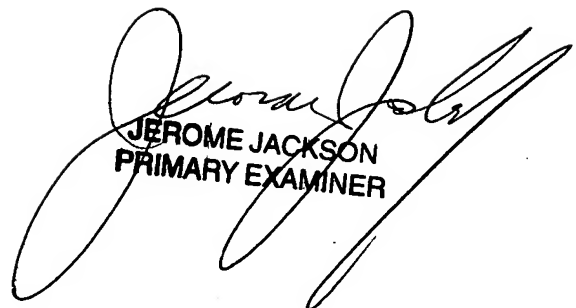 Jerome Jackson
JEROME JACKSON
PRIMARY EXAMINER